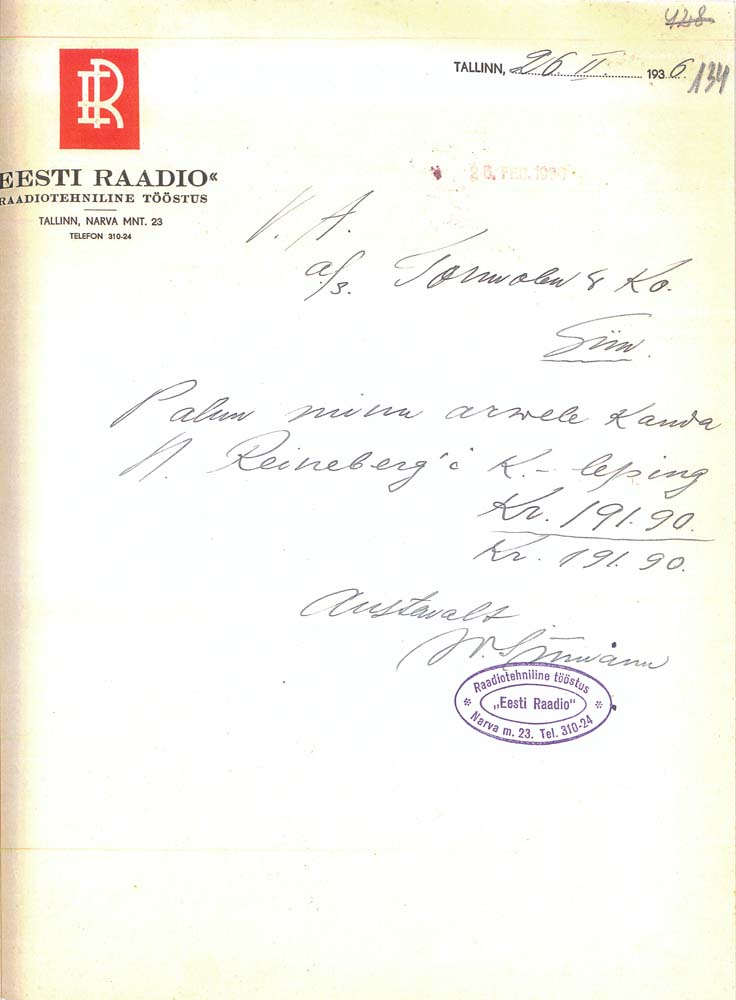 428
TALLINN, 26 II. 1936
134
ER
EESTI RAADIO“
RAADIOTEHNILINE TÖÖSTUS
TALLINN, NARVA MNT. 23
TELEFON 310-24
26. FEB. 1936
V. A.
a/s. Tormolen & Ko.
Siin.
Palun minu arwele kanda
N. Reineberg'i K.- leping
Kr. 191.90.
Kr. 191.90.
Austavalt
Raadiotehniline tööstus
„Eesti Raadio“
Narva m. 23. Tel. 310-24